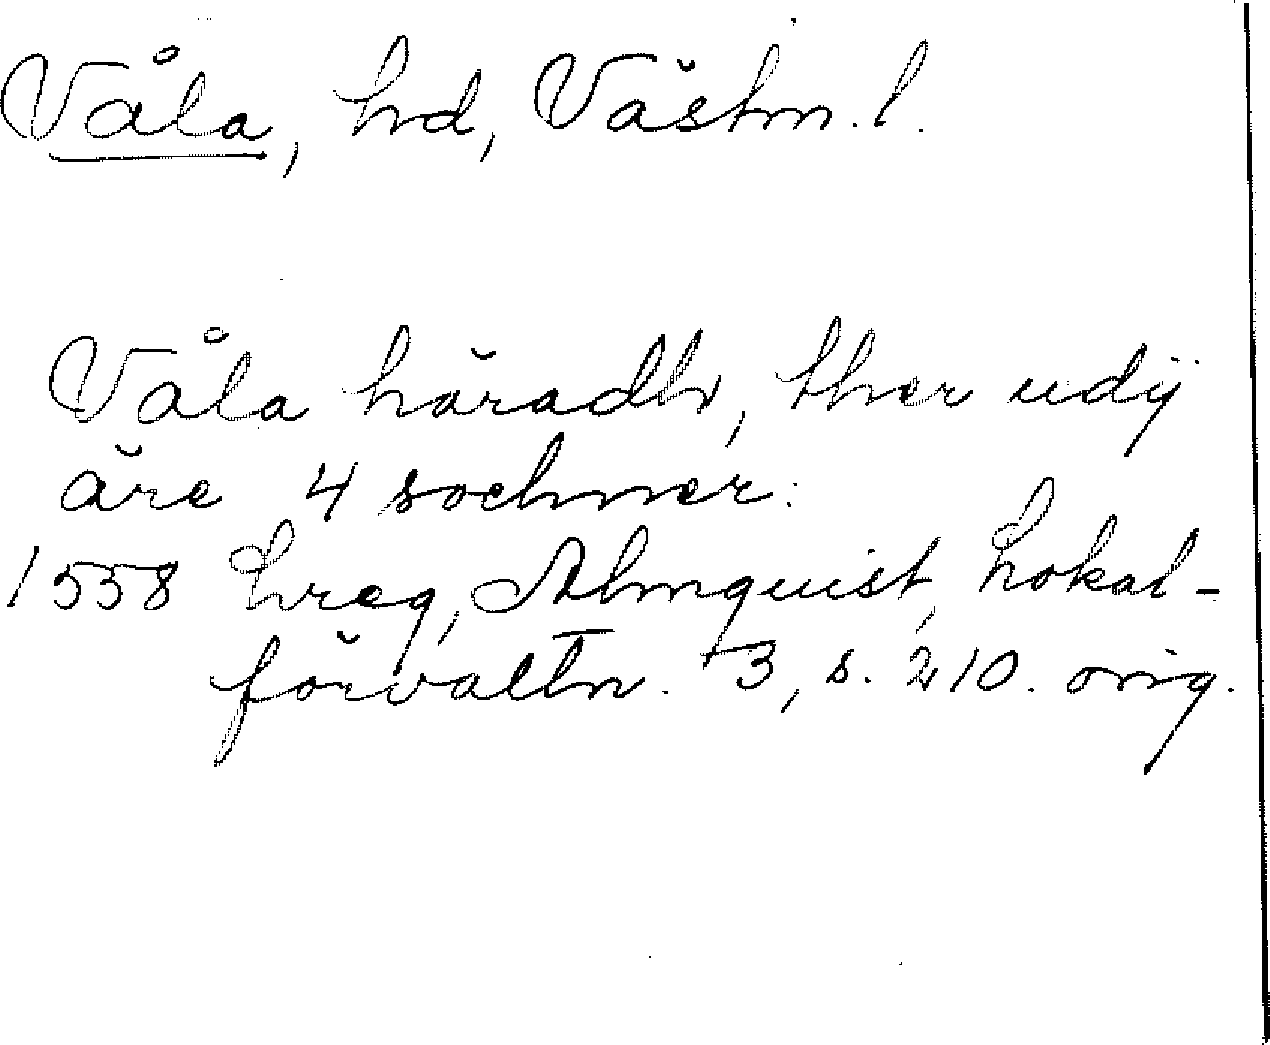 Våla, hd, Västm. l.
Våla häradh, ther udij
äre 4 sochner.
1558 hreg, Almquist, Lokal-
förvaltn. 3, s. 210. orig.